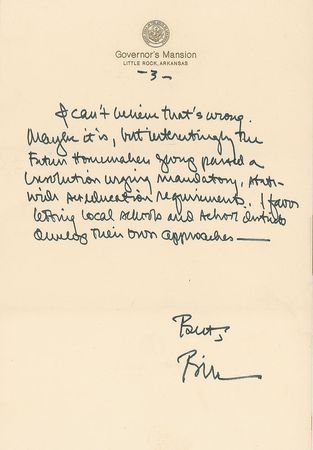 Governor's Mansion
LITTLE ROCK, ARKANSAS
-3-
I can't believe that's wrong.
Maybe it is, but interestingly the
Future Homemakers passed a
resolution urging mandatory, state-
wide sex education requirements. I favor
letting local schools and school districts
develop their own approaches —
Best,
Bill